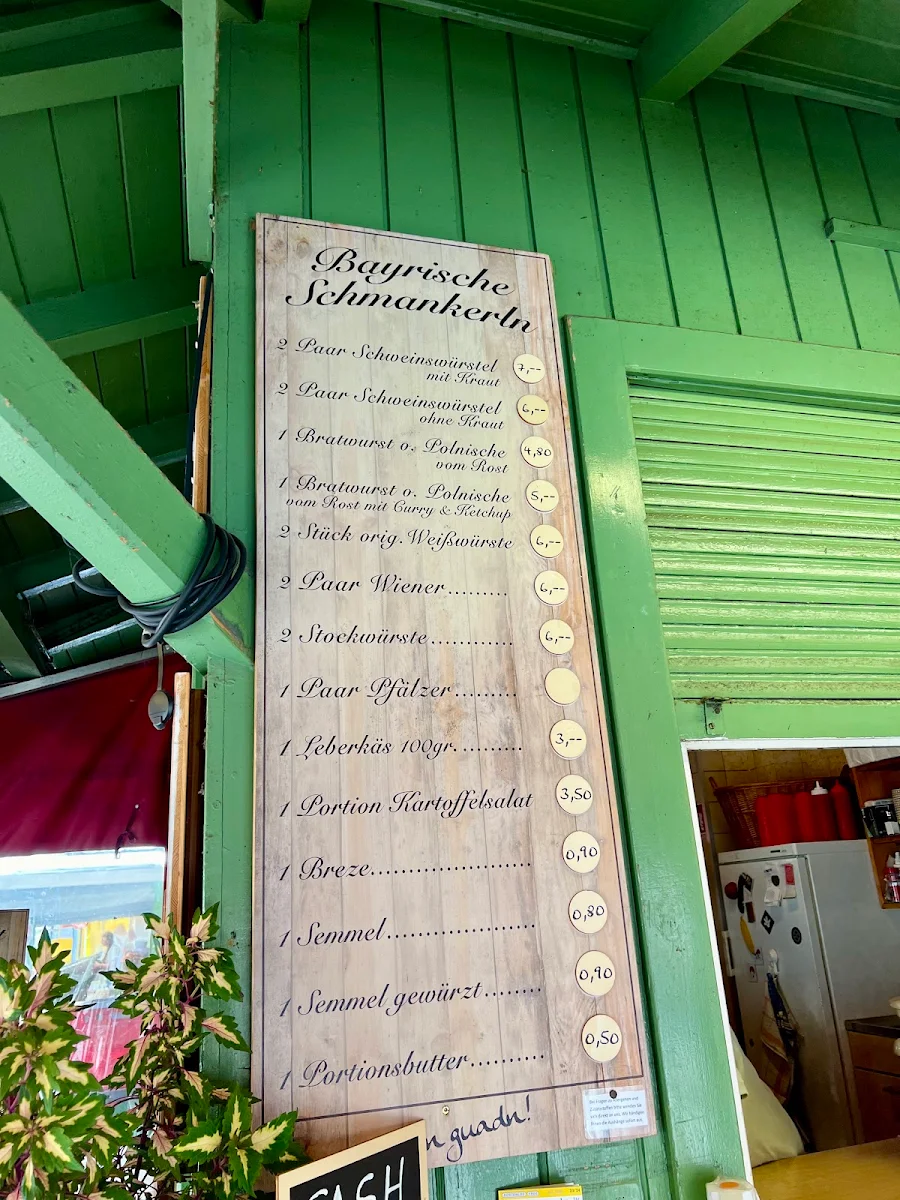 Bayrische
Schmankerln
2 Paar Schweinswürstel 7,--
mit Kraut
2 Paar Schweinswürstel 6,--
ohne Kraut
1 Bratwurst o. Polnische 4,80
vom Rost
1 Bratwurst o. Polnische 5,--
vom Rost mit Curry & Ketchup
2 Stück orig. Weißwürste 6,--
2 Paar Wiener......... 6,--
2 Stockwürste............ 6,--
1 Paar Pfälzer.........
1 Leberkäs 100gr.......... 3,--
1 Portion Kartoffelsalat 3,50
1 Breze..................... 0,90
1 Semmel................... 0,80
1 Semmel gewürzt........ 0,90
1 Portionsbutter.......... 0,50
guadn!
CASH